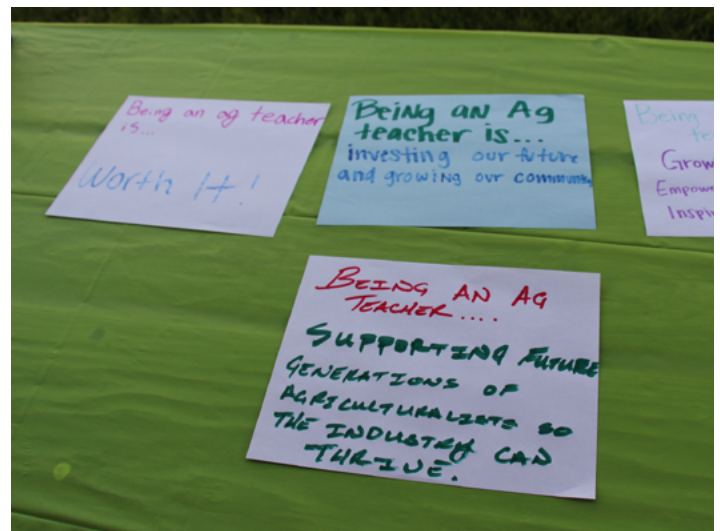 Being an ag teacher
is...
Worth It!
Being an Ag
teacher is...
investing our future
and growing our community
Being
Grow
Empow
Inspi
BEING AN AG
TEACHER....
SUPPORTING FUTURE
GENERATIONS OF
AGRICULTURALISTS SO
THE INDUSTRY CAN
THRIVE.